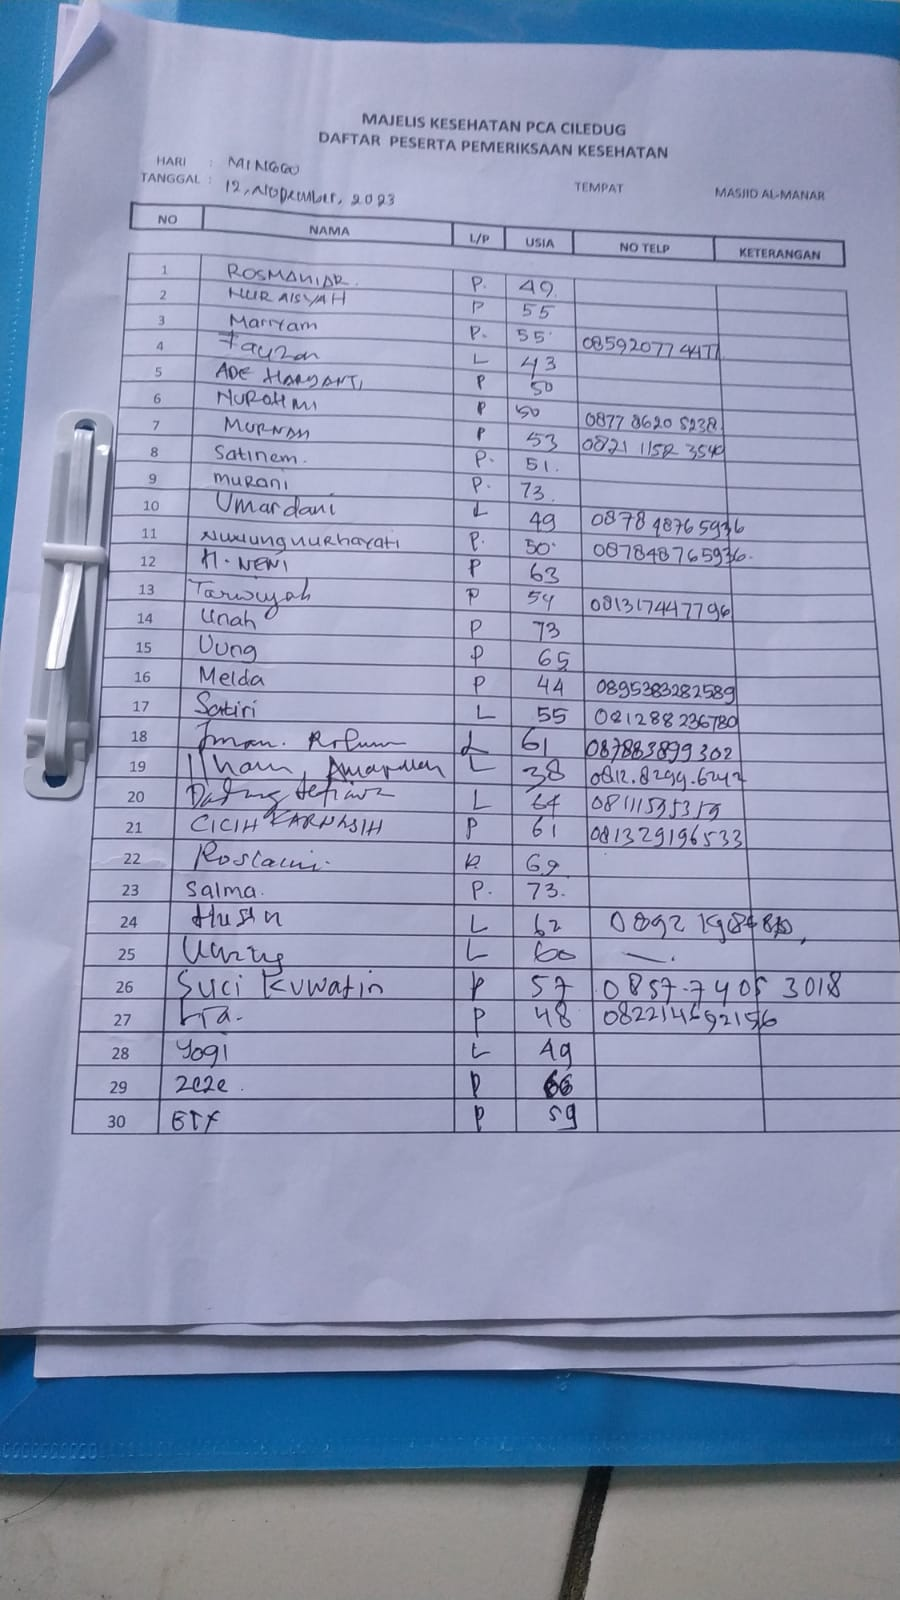 MAJELIS KESEHATAN PCA CILEDUG
DAFTAR PESERTA PEMERIKSAAN KESEHATAN
HARI : MINGGU TEMPAT MASJID AL-MANAR
TANGGAL : 12, November, 2023
NO NAMA L/P USIA NO TELP KETERANGAN
1 ROSMANIAR. P. 49
2 NUR AISYAH P 55
3 Marryam P. 55 085920774477
4 Fauzan L 43
5 ADE HARYANTI P 50
6 NUROHMI P 50 0877 8620 5238
7 MURNAH P 53 0821 1152 3540
8 Satinem. P. 51.
9 murani P. 73.
10 Umardani L 49 087848765936
11 Nunung nurhayati P. 50 087848765936.
12 H. NENI P 63
13 Tarwiyah P 54 081317447796
14 Unah P 73
15 Uung P 65
16 Melda P 44 0895383282589
17 Satiri L 55 081288236780
18 Iman. L 61 087883899302
19 Ilham, L 38 0812.8299.6242
20 Dadang L 64 08111595359
21 CICIH KARNASIH P 61 081329196533
22 69
23 Salma. P. 73.
24 Husin L 62 0892
25 L 60 —.
26 Suci Kuwatin P 57 0857-7405 3018
27 P 48
28 Yogi L 49
29 zeze. P 66
30 P 59